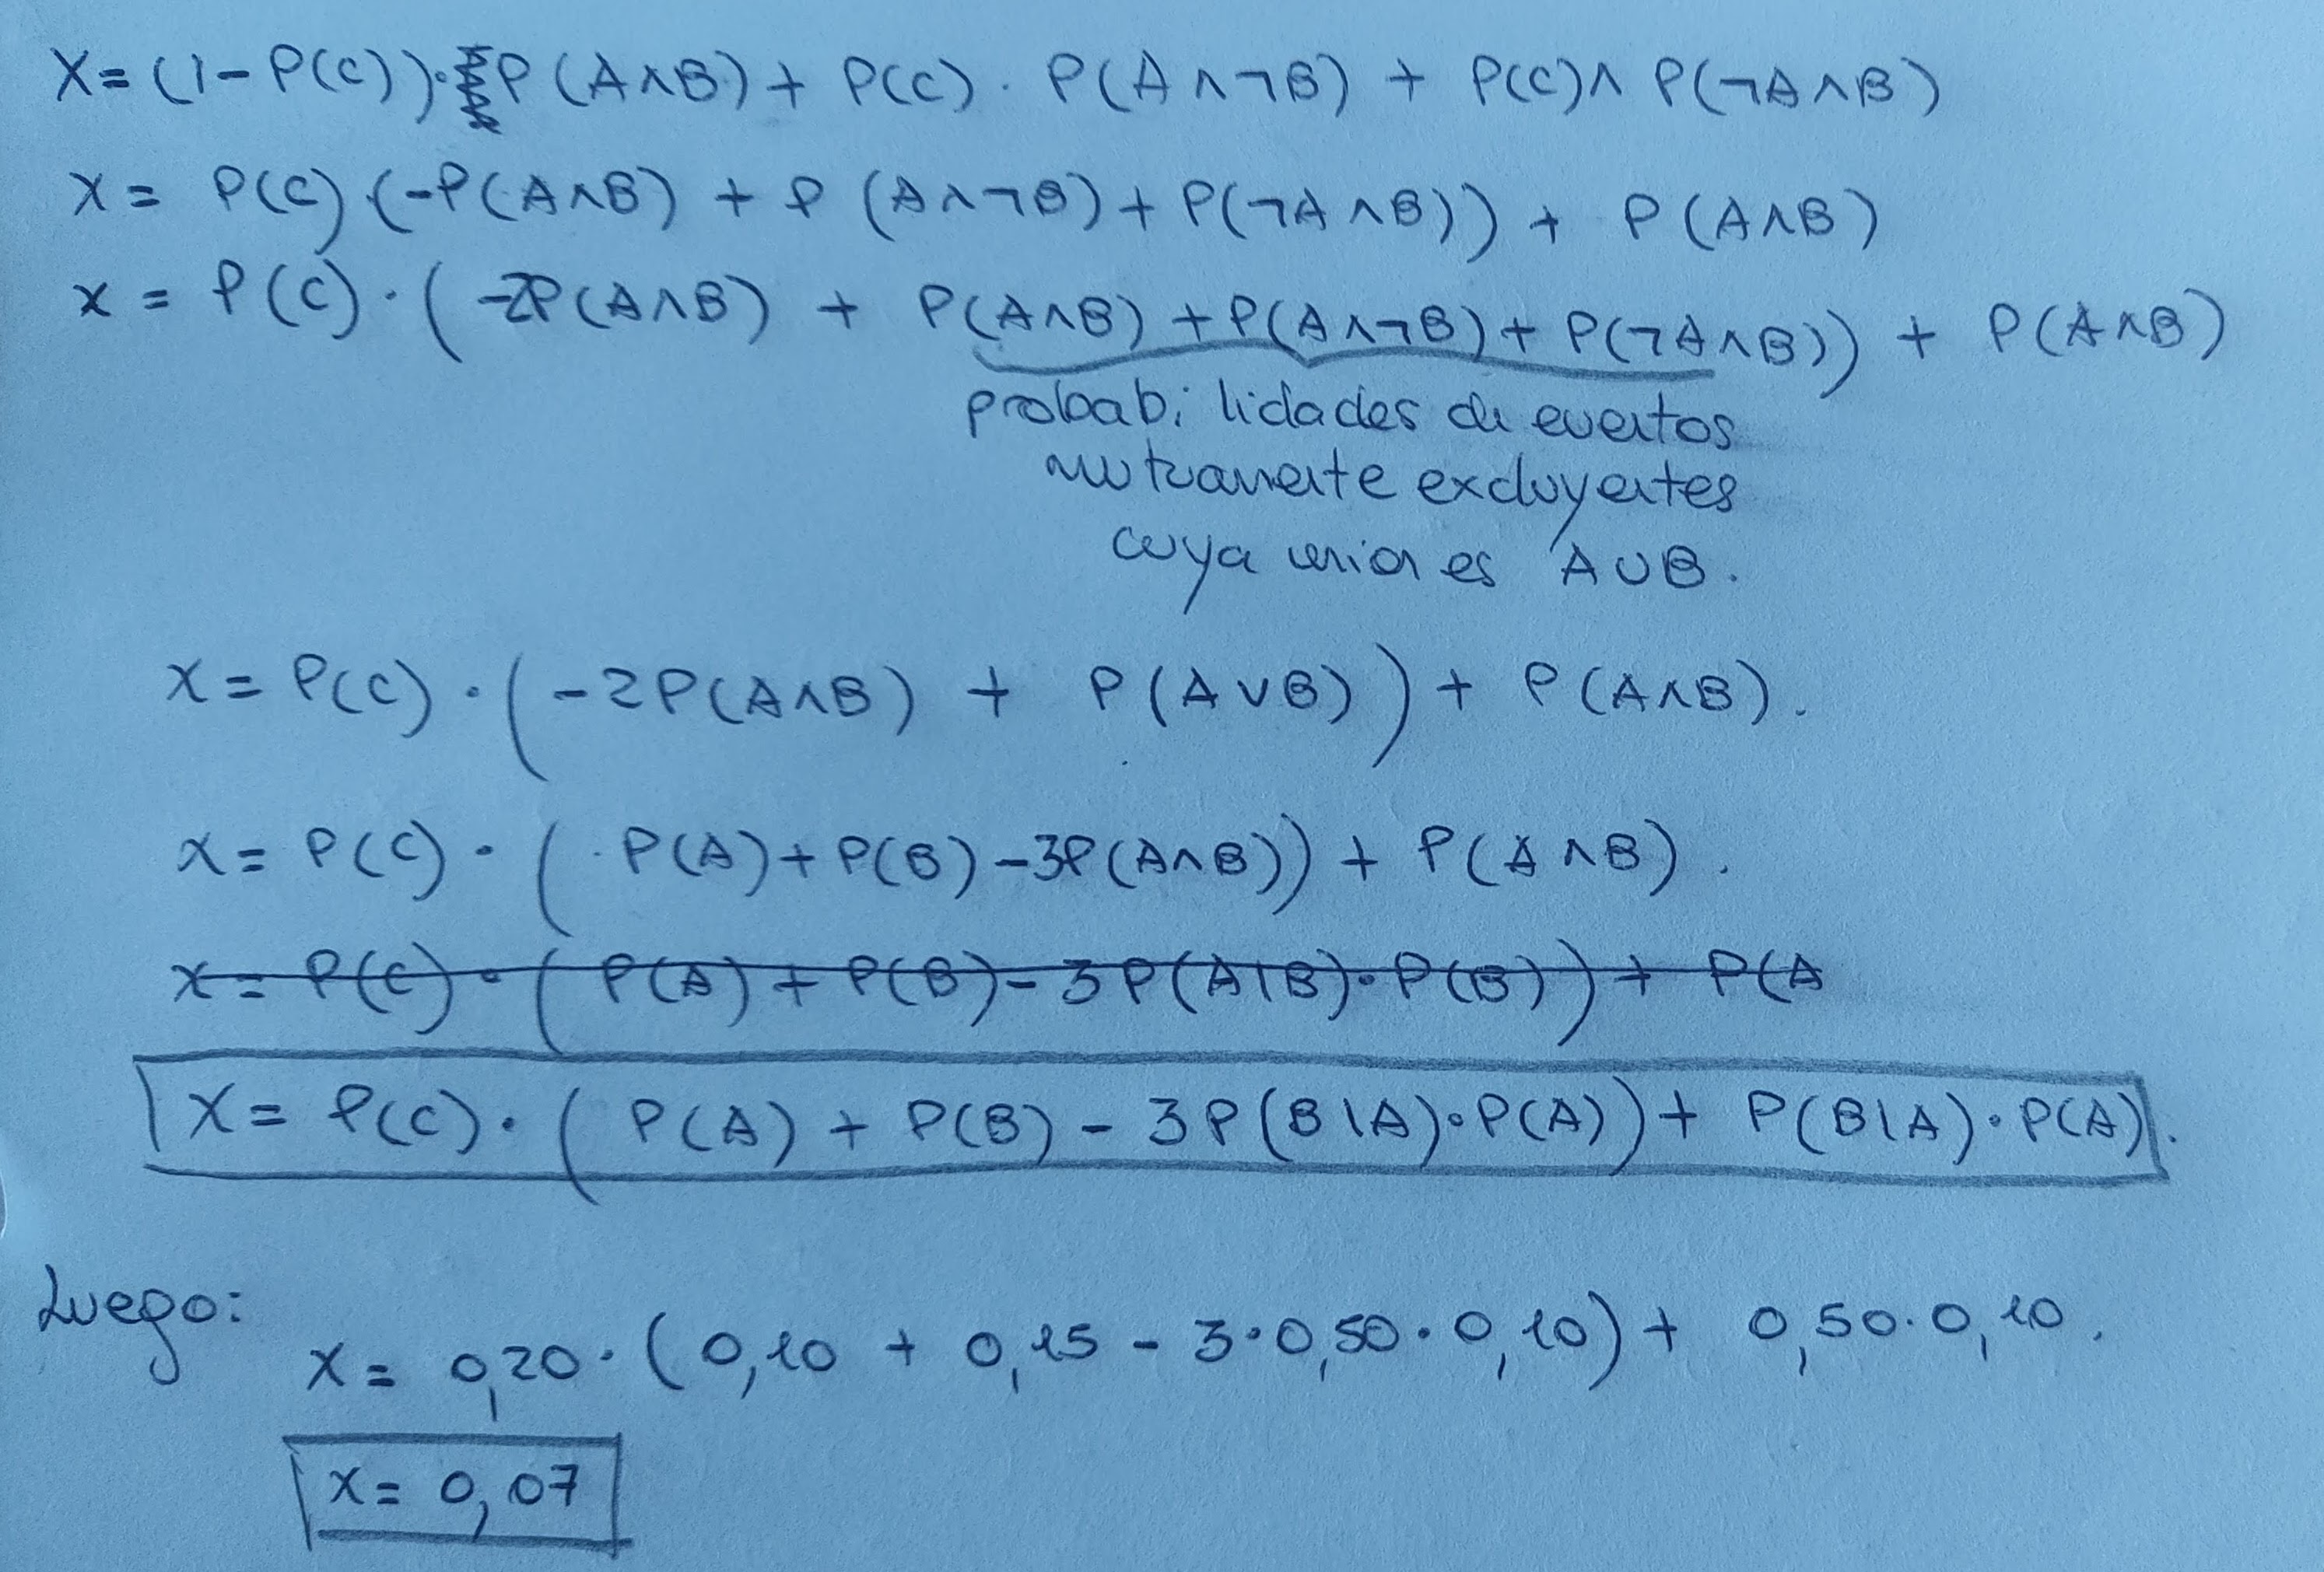 X = (1 - P(C)) · P(A∧B) + P(C) · P(A∧¬B) + P(C) ∧ P(¬A∧B)
X = P(C) (-P(A∧B) + P(A∧¬B) + P(¬A∧B)) + P(A∧B)
X = P(C) · (-2P(A∧B) + P(A∧B) + P(A∧¬B) + P(¬A∧B)) + P(A∧B)
probabilidades de eventos
mutuamente excluyentes
cuya unión es A∪B.
X = P(C) · (-2P(A∧B) + P(A∨B)) + P(A∧B).
X = P(C) · (P(A) + P(B) - 3P(A∧B)) + P(A∧B).
X = P(C) · (P(A) + P(B) - 3P(A|B) · P(B)) + P(A
X = P(C) · (P(A) + P(B) - 3P(B|A) · P(A)) + P(B|A) · P(A).
Luego:
X = 0,20 · (0,10 + 0,15 - 3 · 0,50 · 0,10) + 0,50 · 0,10.
X = 0,07